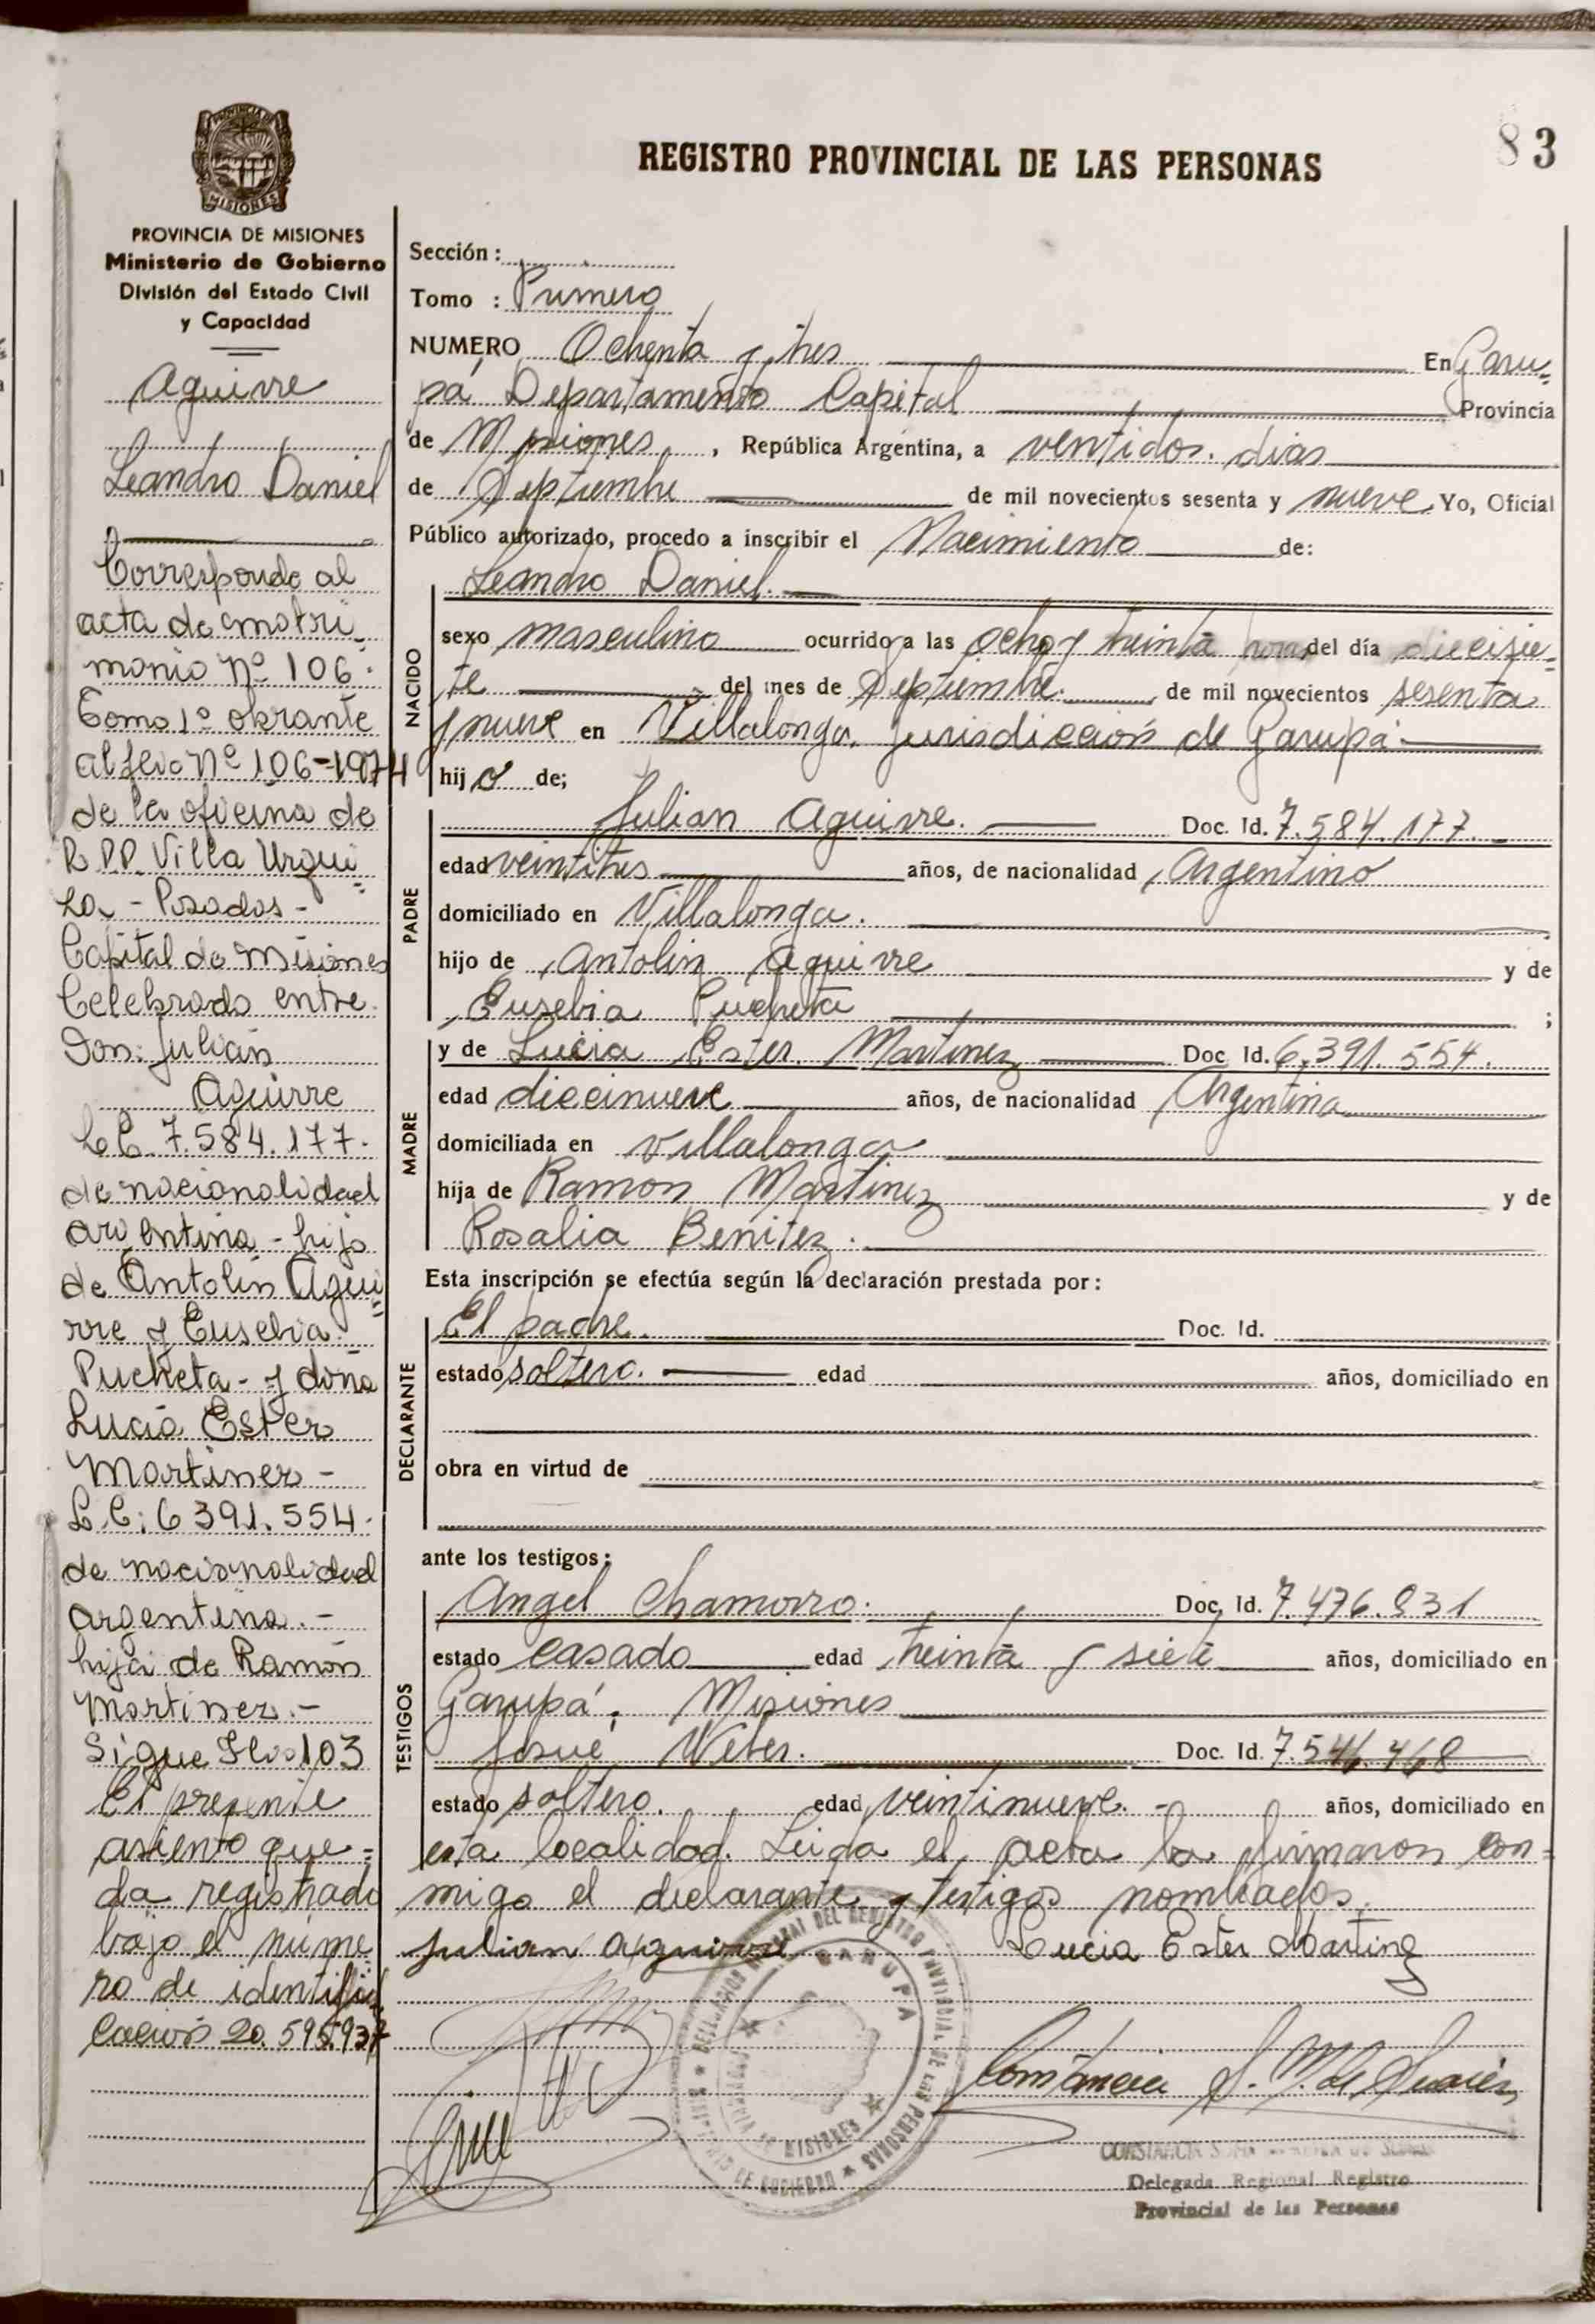 83
REGISTRO PROVINCIAL DE LAS PERSONAS
PROVINCIA DE MISIONES
Ministerio de Gobierno
División del Estado Civil
y Capacidad
Aguirre
Leandro Daniel
Corresponde al
acta de matri-
monio Nº 106.
Tomo 1º obrante
al folio Nº 106-1974
de la oficina de
R.P.P. Villa Urqui=
za - Posadas -
Capital de Misiones
Celebrado entre
Don: Julián
Aguirre
L.E. 7.584.177.
de nacionalidad
argentina - hijo
de Antolín Agui=
rre y Eusebia
Pucheta - y doña
Lucia Ester
Martinez -
L.C: 6391.554.
de nacionalidad
argentina.-
hija de Ramón
Martinez.-
Sigue Flio 103
El presente
asiento que=
da registrado
bajo el núme
ro de identifi
cación 20.595.937
Sección :
Tomo : Primero
NUMERO Ochenta y tres En Garu=
pá Departamento Capital Provincia
de Misiones , República Argentina, a ventidos dias
de Septiembre de mil novecientos sesenta y nueve Yo, Oficial
Público autorizado, procedo a inscribir el Nacimiento de:
Leandro Daniel.
NACIDO
sexo masculino ocurrido a las ocho y treinta horas del día diecisie=
te del mes de Septiembre. de mil novecientos sesenta
y nueve en Villalonga, jurisdicción de Garupá.
hij o de;
PADRE
Julian Aguirre. Doc. Id. 7.584.177.
edad veintitres años, de nacionalidad Argentino
domiciliado en Villalonga.
hijo de Antolin Aguirre y de
Eusebia Pucheta ;
MADRE
y de Lucia Ester Martinez Doc Id. 6.391.554.
edad diecinueve años, de nacionalidad Argentina
domiciliada en Villalonga
hija de Ramon Martinez y de
Rosalia Benitez.
Esta inscripción se efectúa según la declaración prestada por:
DECLARANTE
El padre. Doc. Id.
estado soltero. edad años, domiciliado en
obra en virtud de
ante los testigos:
TESTIGOS
Angel Chamorro. Doc, Id. 7.476.831
estado casado edad treinta y siete años, domiciliado en
Garupá. Misiones
Josué Weber. Doc. Id. 7.546.468
estado soltero. edad veintinueve. años, domiciliado en
esta localidad. Leida el acta la firmaron con=
migo el declarante y testigos nombrados.
Julian Aguirre Lucia Ester Martinez
GARUPA
PROVINCIA DE MISIONES
MINISTERIO DE GOBIERNO
Constancia S. M. de Suarez
Delegada Regional Registro
Provincial de las Personas